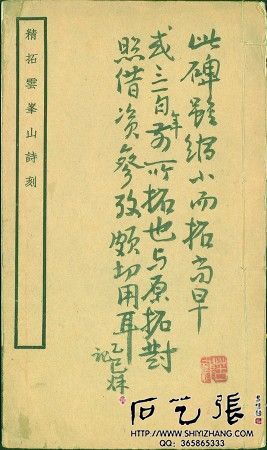 此碑雖縮小而拓尚早
或三百年前所拓也与原拓對
照借资參攷頗切用耳
乙巳秌
記
精拓雲峯山詩刻
石艺張
HTTP://WWW.SHIYIZHANG.COM
QQ: 365865333